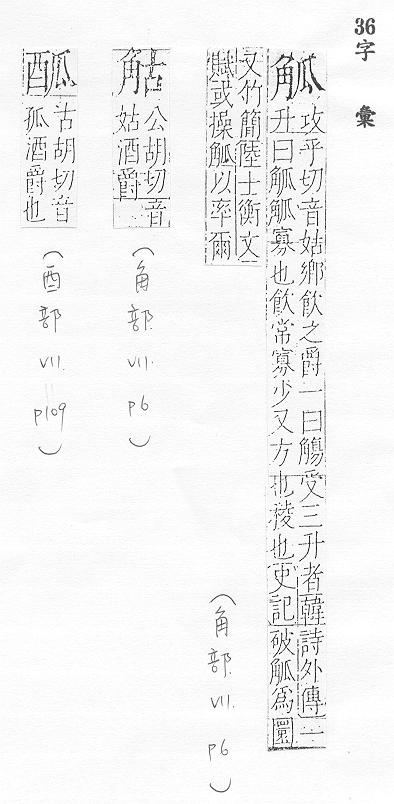 36字 彙
觚
攻乎切音姑鄉飲之爵一曰觴受三升者韓詩外傳一
升曰觚觚寡也飲常寡少又方也稜也史記破觚爲圜
又竹簡陸士衡文
賦或操觚以率爾
(角部 VII. p6)
公胡切音
姑酒爵
(角部 VII. p6)
古胡切音
孤酒爵也
(酉部 VII. p109)